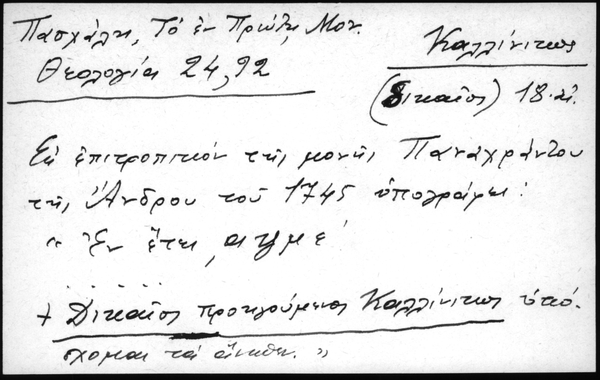 Πασχάλη, Τὸ ἐν Πρώτῃ Μον.
Θεολογία 24, 92
Καλλίνικος
(Δικαῖος) 18. αἰ.
Εἰς ἐπιτροπικὸν τῆς μονῆς Παναχράντου
τῆς Ἄνδρου τοῦ 1745 ὑπογράφει:
“ Ἐν ἔτει ͵αψμέ
. . . . . .
+ Δικαῖος προηγούμενος Καλλίνικος ὑπό-
σχομαι τὰ ἄνωθεν. ”